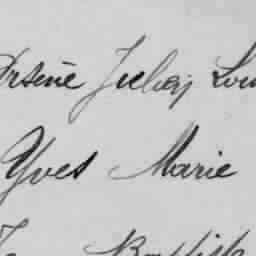 Arsène Julien Lou
Yves Marie
Baptist